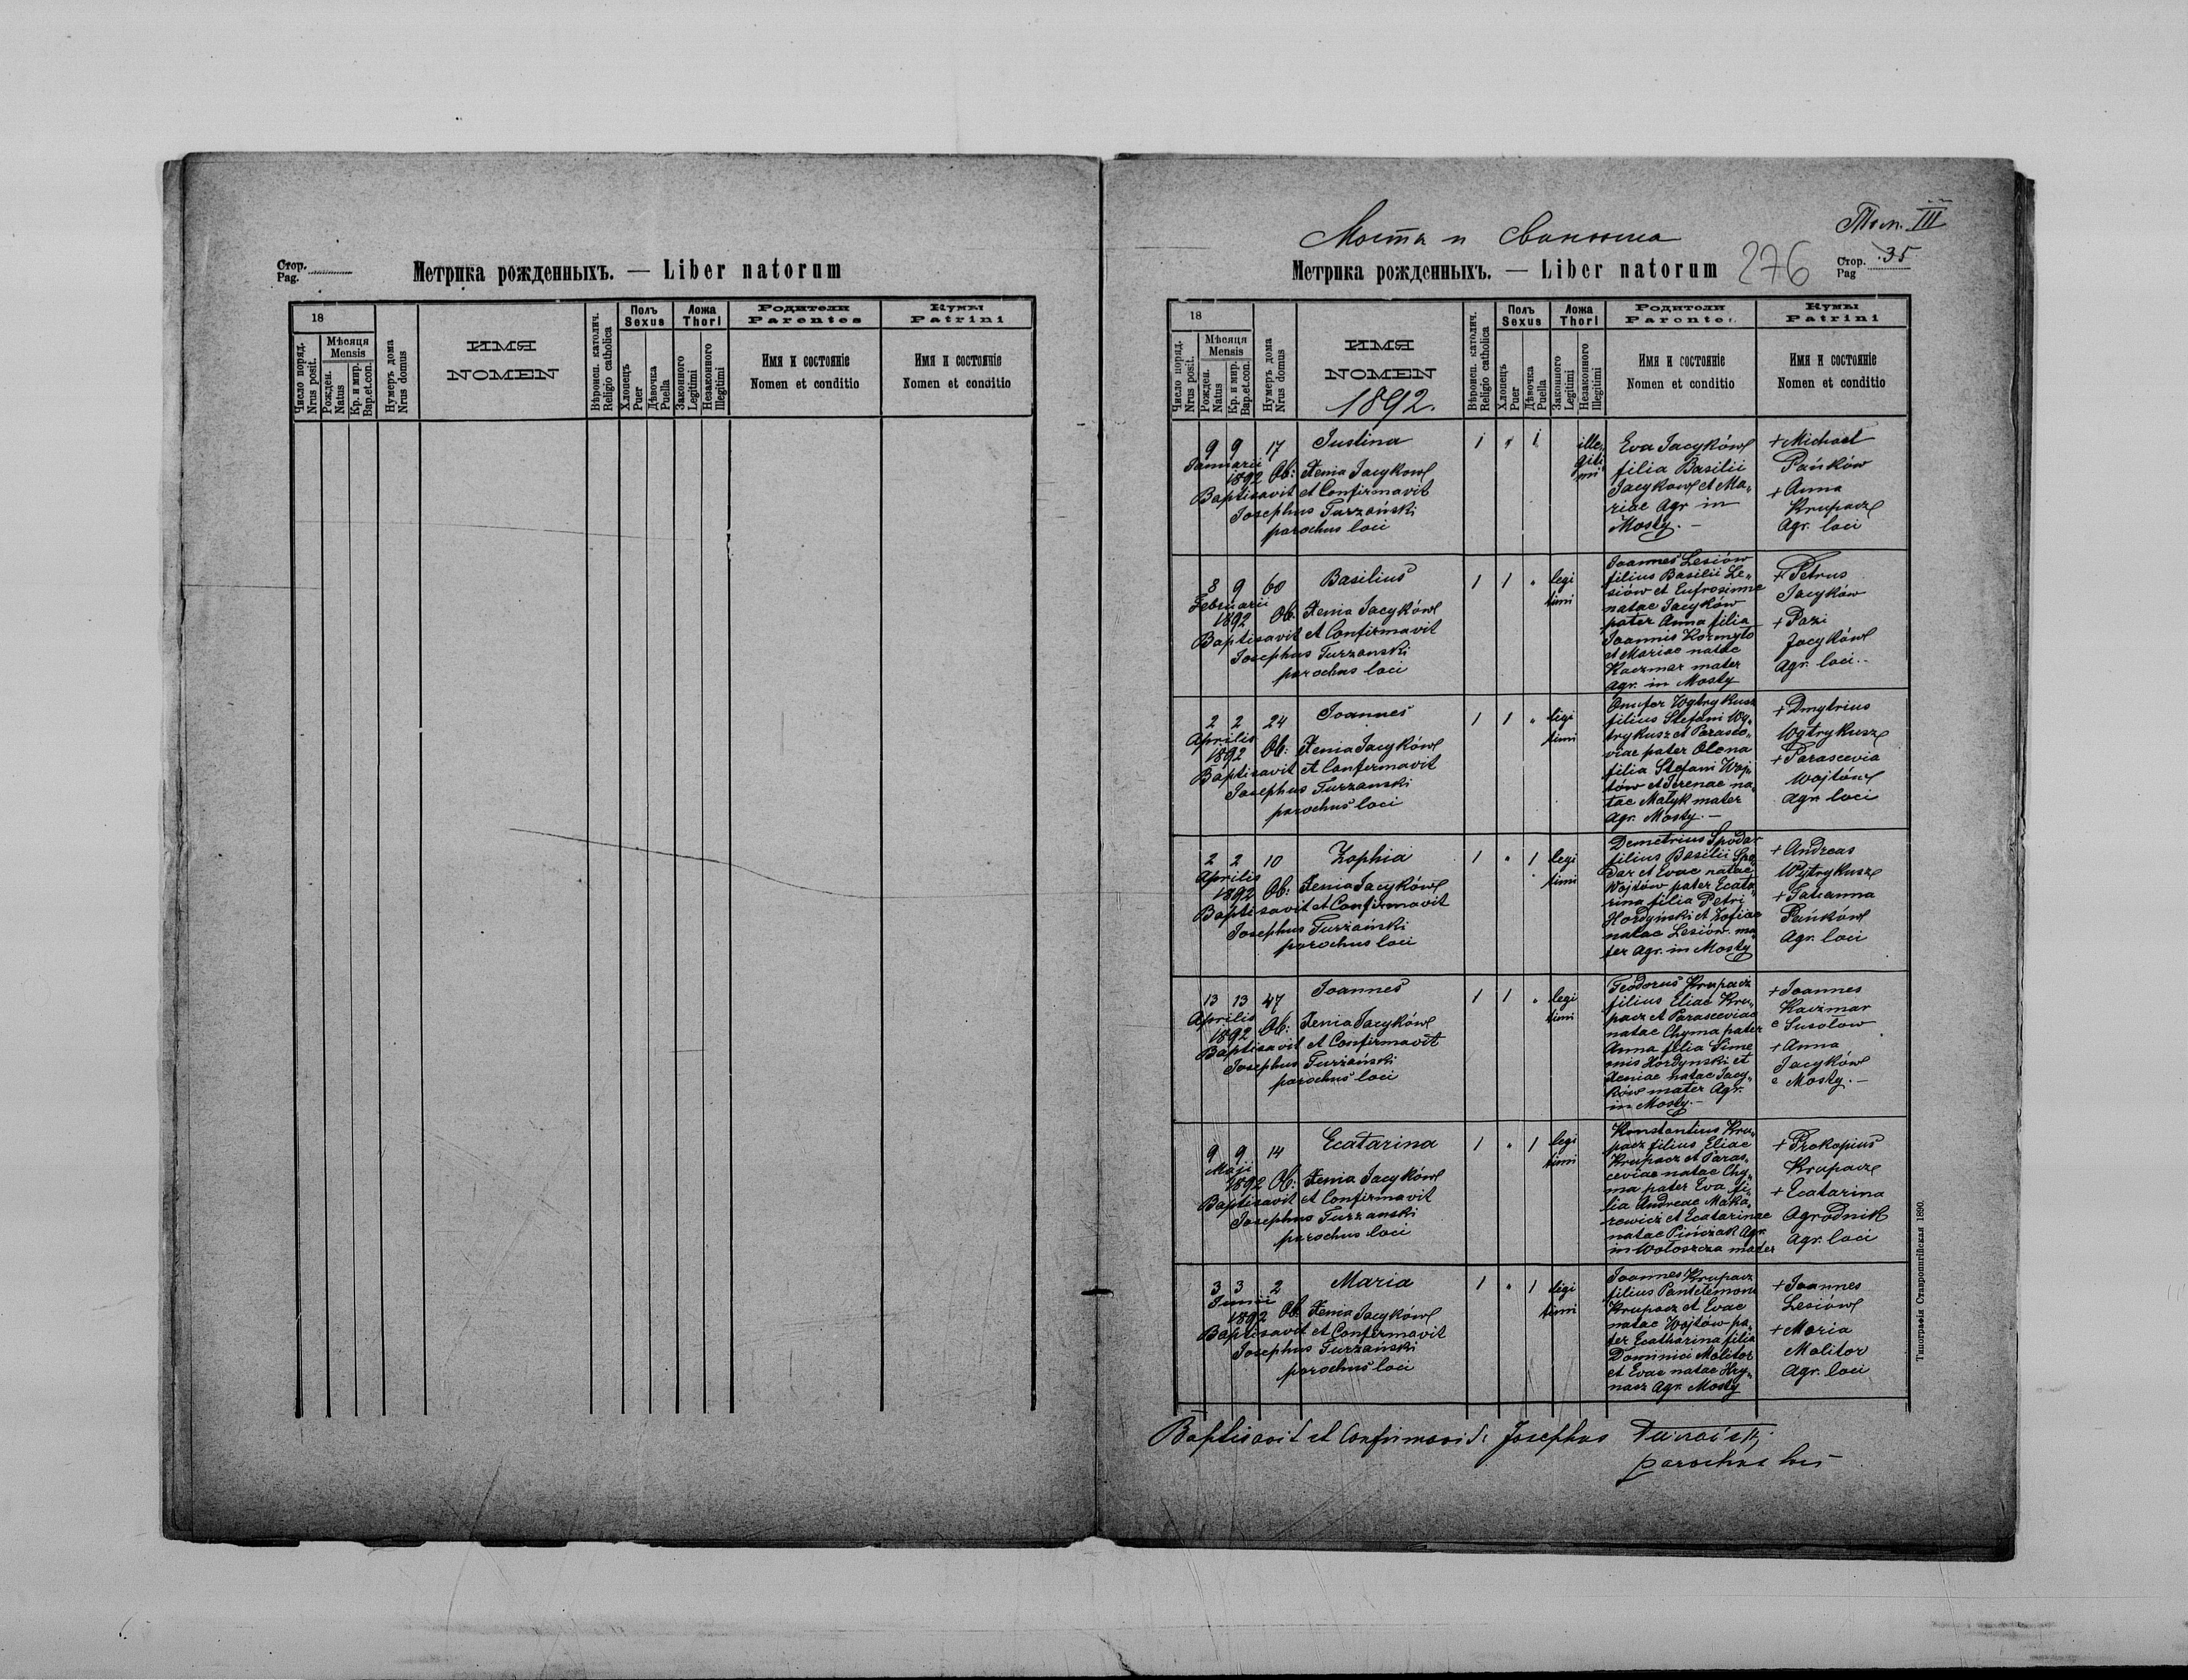 Стор.
Pag.
Метрика рожденныхъ. — Liber natorum
18
Число поряд.
Nrus posit.
Мѣсяця
Mensis
Рожден.
Natus
Кр. и мир.
Bap.et.con.
Нумеръ дома
Nrus domus
ИМЯ
NOMEN
Вѣроисп. католич.
Religio catholica
Полъ
Sexus
Хлопецъ
Puer
Дѣвочка
Puella
Ложа
Thori
Законного
Legitimi
Незаконного
Illegitimi
Родители
Parentes
Имя и состояніе
Nomen et conditio
Кумы
Patrini
Имя и состояніе
Nomen et conditio
Мосты и
Том. III
Метрика рожденныхъ. — Liber natorum
276
Стор. 35
Pag
18
Число поряд.
Nrus posit.
Мѣсяця
Mensis
Рожден.
Natus
Кр. и мир.
Bap.et.con.
Нумеръ дома
Nrus domus
ИМЯ
NOMEN
1892.
Вѣроисп. католич.
Religio catholica
Полъ
Sexus
Хлопецъ
Puer
Дѣвочка
Puella
Ложа
Thori
Законного
Legitimi
Незаконного
Illegitimi
Родители
Parentes
Имя и состояніе
Nomen et conditio
Кумы
Patrini
Имя и состояніе
Nomen et conditio
9 9 17 Justina 1 " 1 ille,
giti,
mi
Januarii
1892 Ob: Xenia Jacyków
Baptisavit et Confirmavit
Josephus Turzański
parochus loci
Eva Jacyków
filia Basilii
Jacyków et Ma,
riae Agr in
Mosty. —
+ Michael
Pańków
+ Anna
Krupacz
Agr. loci
8 9 60 Basilius 1 1 " legi
timi
Februarii
1892 Ob. Xenia Jacyków
Baptisavit et Confirmavit
Josephus Turzanski
parochus loci
Joannes Lesiów
filius Basilii Le,
siów et Eufrosinne
natae Jacyków
pater Anna filia
Joannis Kormyto
et Mariae natae
Kaczmar mater
Agr. in Mosty
+ Petrus
Jacyków
+ Pazi
Jacyków
Agr. loci.
2 2 24 Joannes 1 1 " legi
timi
Aprilis
1892 Ob: Xenia Jacyków
Baptisavit et Confirmavit
Josephus Turzanski
parochus loci
Onufer Wytrykusz
filius Stefani Wy,
trykusz et Parasce,
viae pater Olena
filia Stefani Woj,
tów et Irenae na,
tae Matyk mater
Agr. Mosty. —
+ Dmytrius
Wytrykusz
+ Parascevia
Wojtów
Agr loci
2 2 10 Zophia 1 " 1 legi
timi
Aprilis
1892 Ob: Xenia Jacyków
Baptisavit et Confirmavit
Josephus Turzański
parochus loci
Demetrius Spodar
filius Basilii Spo,
dar et Evae natae
Wojtów pater Ecata,
rina filia Petri
Hordyński et Zofiae
natae Lesiów ma,
ter Agr. in Mosty
+ Andreas
Wytrykusz
+ Tatianna
Pańków
Agr. loci
13 13 47 Joannes 1 1 " legi
timi
Aprilis
1892 Ob: Xenia Jacyków
Baptisavit et Confirmavit
Josephus Turzański
parochus loci
Teodorus Krupacz
filius Eliae Kru,
pacz et Parasceviae
natae Chyma pater
Anna filia Sime
onis Hordynski et
Xeniae natae Jacy,
ków mater Agr.
in Mosty. —
+ Joannes
Kaczmar
e Susolow
+ Anna
Jacyków
e Mosty. —
9 9 14 Ecatarina 1 " 1 legi
timi
Maji
1892 Ob: Xenia Jacyków
Baptisavit et Confirmavit
Josephus Turzanski
parochus loci
Konstantius Kru,
pacz filius Eliae
Krupacz et Paras,
ceviae natae Chy,
ma pater Eva fi,
lia Andreae Maka,
rewicz et Ecatarinae
natae Pińczak Agr.
in Wołoszcza mater
+ Prokopius
Krupacz
+ Ecatarina
Agrodnik
Agr. loci
3 3 2 Maria 1 " 1 legi
timi
Junii
1892 Ob. Xenia Jacyków
Baptisavit et Confirmavit
Josephus Turzański
parochus loci
Joannes Krupacz
filius Pantelemoni
Krupacz et Evae
natae Wojtów pa,
ter Ecatharina filia
Dominici Molitor
et Evae natae Hry,
nacz Agr. Mosty
+ Joannes
Lesiów
+ Maria
Molitor
Agr. loci
Baptisavit et Confirmavit: Josephus
parochus loci
Типографія Ставропигійская 1890.